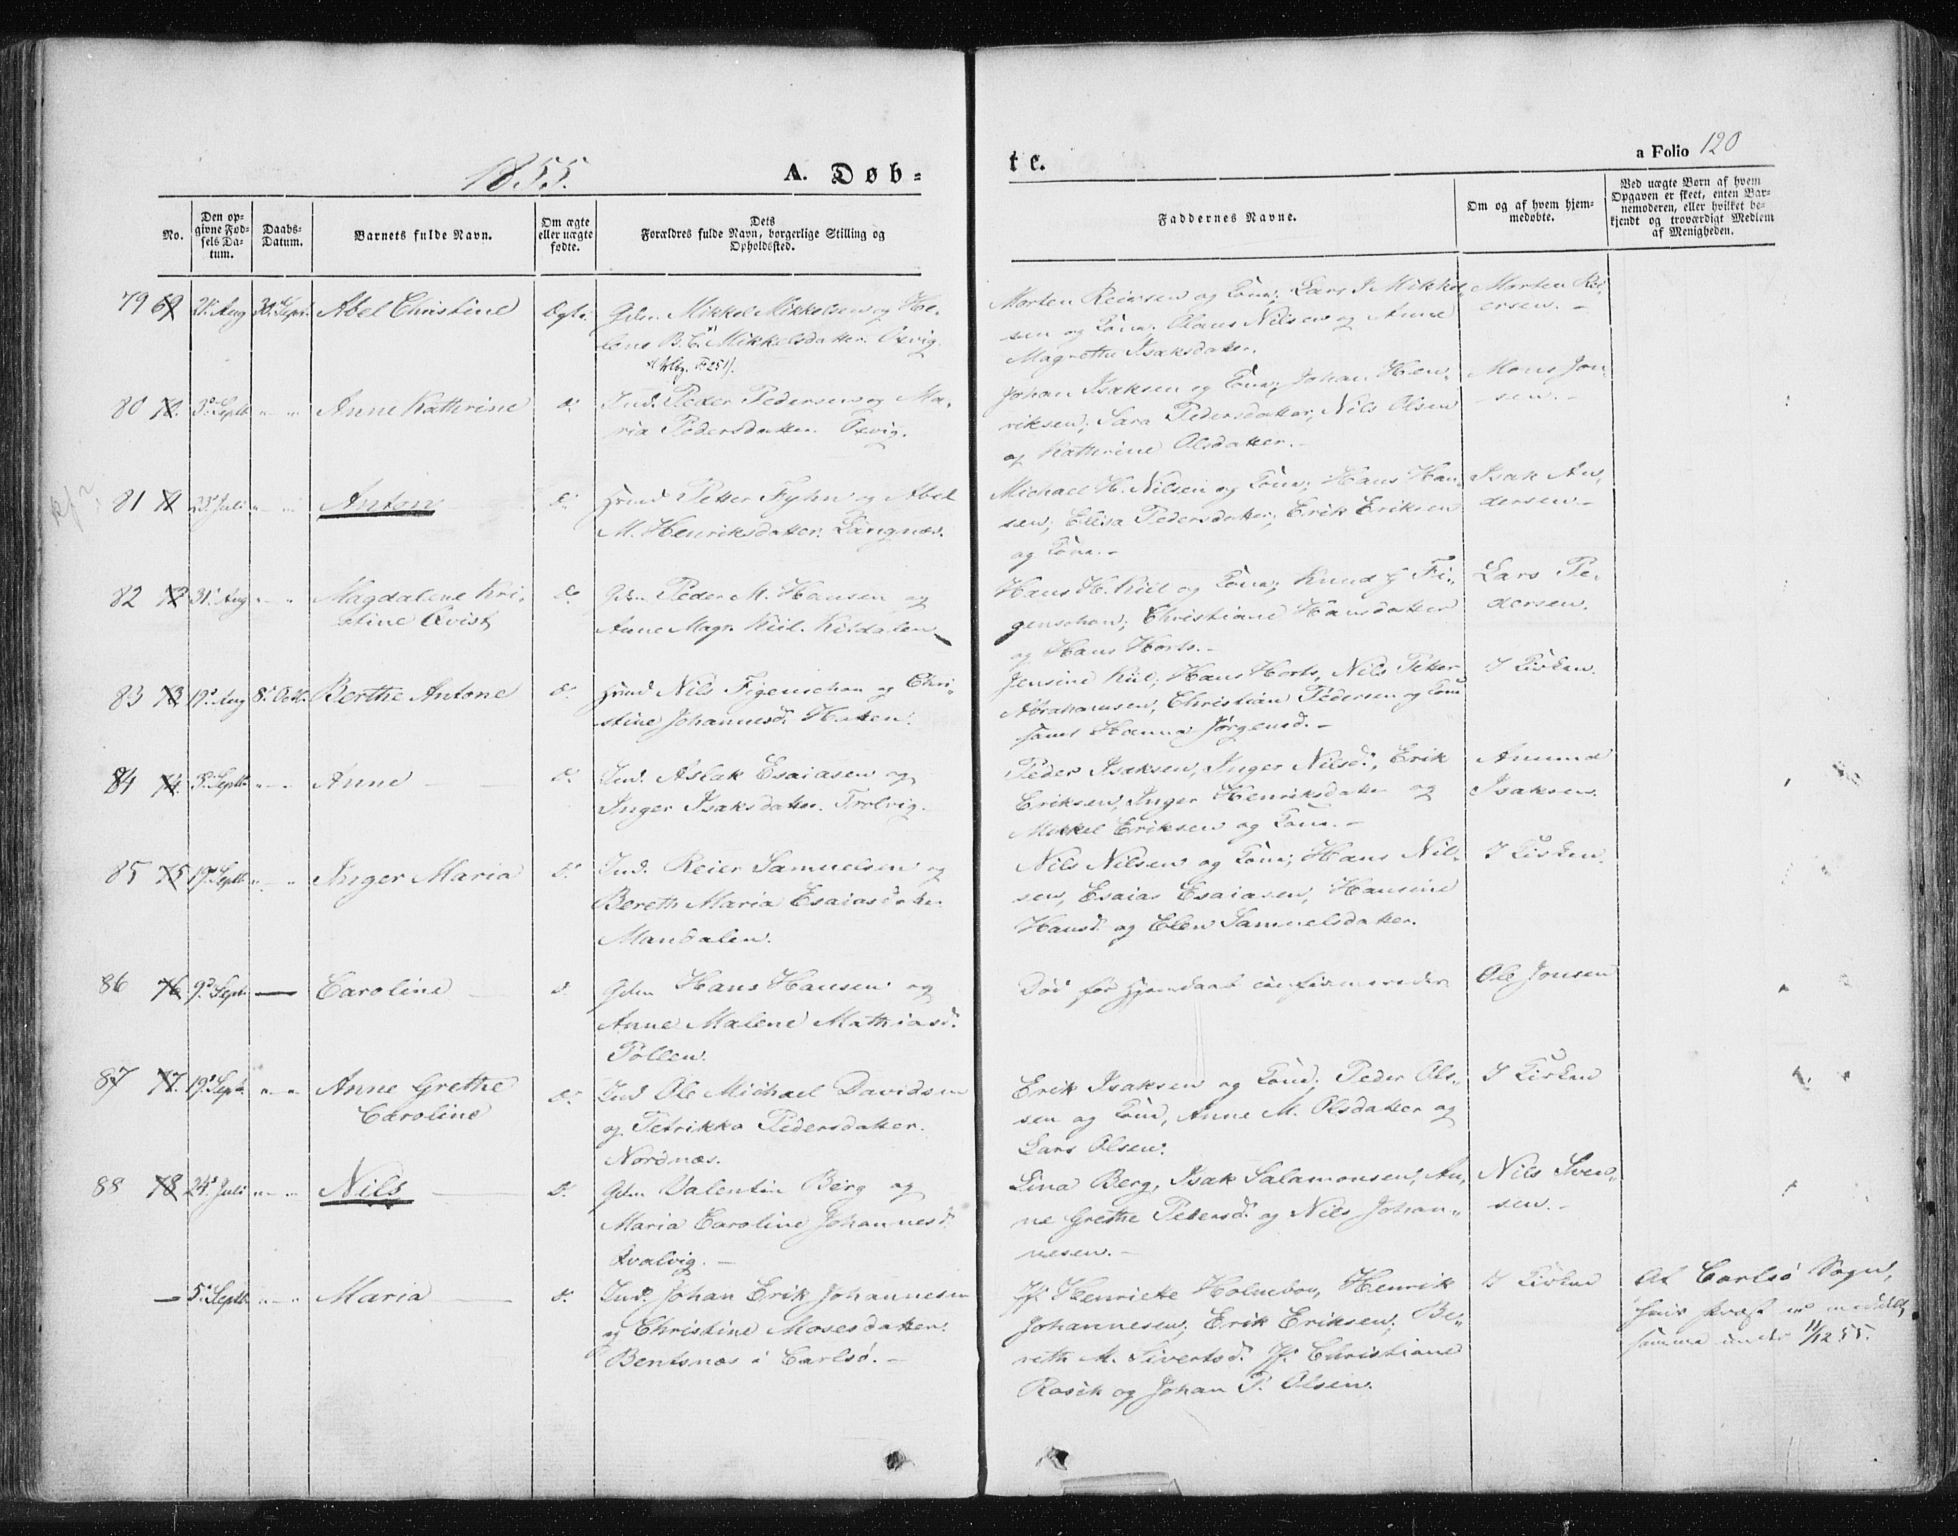 1855.
A. Døb-
te.
a Folio 120
No.
Den op-
givne Fød-
sels Da-
tum.
Daabs-
Datum.
Barnets fulde Navn.
Om ægte
eller uægte
fødte.
Dets
Forældres fulde Navn, borgerlige Stilling og
Opholdssted.
Faddernes Navne.
Om og af hvem hjem-
medøbte.
Ved uægte Børn af hvem
Opgaven er skeet, enten Bar-
nemoderen, eller hvilket be-
kjendt og troværdigt Medlem
af Menigheden.
79 69 Aug 30 Sept. Abel Christine Ægte.
Mikkel Mikkelsen og He-
lene B. C. Mikkelsdatter. Oxvig.
Morten Reiersen og Kone; Lars J. Mikkel-
sen og Kone; Olaus Nilsen og Anne
Magrethe Isaksdatter.
Morten Rei-
ersen.
80 70. 3d Septb. " " Anne Kathrine d.
Ind. Peder Pedersen og Ma-
ria Pedersdatter. Oxvig.
Johan Isaksen og Kone; Johan Hen-
riksen; Sara Pedersdatter; Nils Olsen
og Kathrine Olsdatter.
Mons Jon-
sen.
81 71 23d Juli " " Anton d.
Hmd Petter Fyhn og Abel
M. Henriksdatter. Langnæs.
Michael H. Nilsen og Kone; Hans Han-
sen; Elisa Pedersdatter; Erik Eriksen
og Kone.
Isak An-
dersen.
82 72 31. Aug " " Magdalene Kri-
stine Qvist d.
Peder M. Hansen og
Anne Magr. Kiil. Kildalen
Hans H. Kiil og Kone; Knud Fi-
genschou; Christiane Hansdatter
og Hans Horts.
Lars Pe-
dersen.
83 73 19d Aug 8d Octb. Berthe Antone d.
Hmd Nils Figenschou og Chri-
stine Johannesd. Haten.
Jensine Kiil; Hans Horts, Nils Peter
Abrahamsen, Christian Pedersen og Kone
samt Hanna Jørgensd.
I Kirken.
84 74. Septb. " " Anne d.
Ind. Aslak Esaiasen og
Inger Isaksdatter. Trolvig.
Peder Isaksen, Inger Nilsd., Erik
Eriksen, Inger Henriksdatter og
Mikkel Eriksen og Kone.
Amund
Isaksen.
85 75 19d Septb. " " Inger Maria d.
Ind. Reier Samuelsen og
Bereth Maria Esaiasdatter
Mandalen.
Nils Nilsen og Kone; Hans Nil-
sen, Esaias Esaiasen, Hansine
Hansd. og Elen Samuelsdatter.
I Kirken.
86 76 9d Septb. — Caroline d.
Hans Hansen og
Anne Malene Mathiasd.
Pollen.
Død før Hjemdaab confirmeredes
Ole Jonsen
87 77. 19d Septb. " " Anne Grethe
Caroline d.
Ind Ole Michael Davidsen
og Petrikka Pedersdatter.
Nordnæs.
Erik Isaksen og Kone; Peder Ols-
sen og Kone, Anne M. Olsdatter og
Lars Olsen.
I Kirken
88 78 24d Juli " " Nils d.
Valentin Berg og
Maria Caroline Johannesd.
Qvalvig.
Lina Berg, Isak Salamonsen, An-
ne Grethe Pedersd. og Nils Johan-
nesen.
Nils Sven-
sen.
— 5d Septb. " " Maria d.
Ind. Johan Erik Johannesen
og Christine Mosesdatter.
Bentsnæs i Carlsø.
Jf. Henriete Holmboe, Henrik
Johannesen; Erik Eriksen; Be-
reth M. Sivertsd. Jf. Christiane
Rasch og Johan P. Olsen.
I Kirken
Af Carlsø Sogn,
hvis Præst er meddelt
samme under 11/12 55.